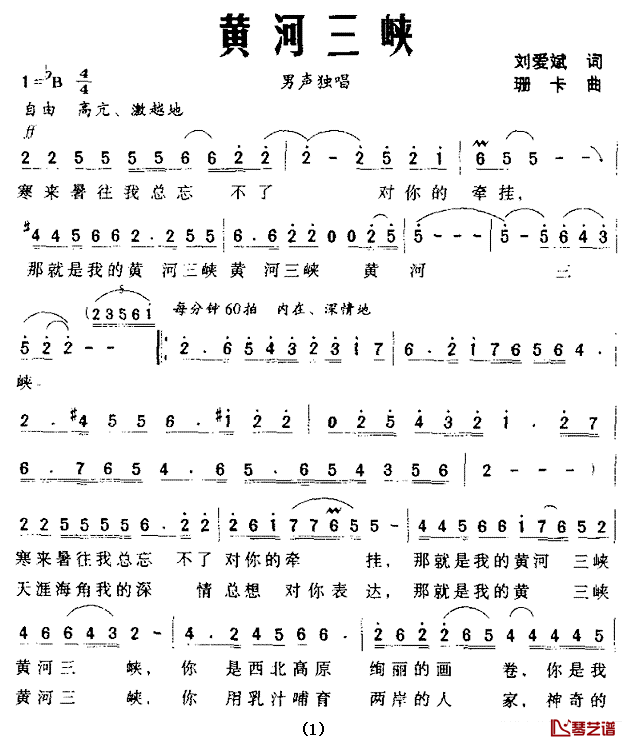 黄河三峡
刘爱斌 词
1=♭B 4/4 男声独唱 珊卡 曲
自由 高亢、激越地
ff
2 2 5 5 5 5 6 6 2 2 | 2 - 2 5 2 1 | 6 5 5 - -
寒来暑往我总忘 不了 对你的牵挂,
#4 4 5 6 6 2 . 2 5 5 | 6 . 6 2 2 0 0 2 5 | 5 - - - | 5 - 5 6 4 3
那就是我的黄 河三峡 黄 河三峡 黄 河 三
5
(2 3 5 6 1 每分钟60拍 内在、深情地
5 2 2 - - |: 2 . 6 5 4 3 2 3 1 7 | 6 . 2 1 7 6 5 6 4 .
峡
2 . #4 5 5 6 . #1 2 2 | 0 2 5 4 3 2 1 . 2 7
6 . 7 6 5 4 . 6 5 . 6 5 4 3 5 6 | 2 - - - )
2 2 5 5 5 5 6 . 2 2 | 2 6 1 7 7 6 5 5 - | 4 4 5 6 6 6 1 7 6 5 2
寒来暑往我总忘 不了 对你的牵 挂, 那就是我的黄河 三峡
天涯海角我的深 情总想 对你表 达, 那就是我的黄 三峡
4 6 6 4 3 2 - | 4 . 2 4 5 6 6 . | 2 6 2 2 2 6 5 4 4 4 4 5
黄河三 峡, 你 是西北高原 绚丽的画 卷, 你是我
黄河三 峡, 你 用乳汁哺育 两岸的人 家, 神奇的
(1)
琴艺谱